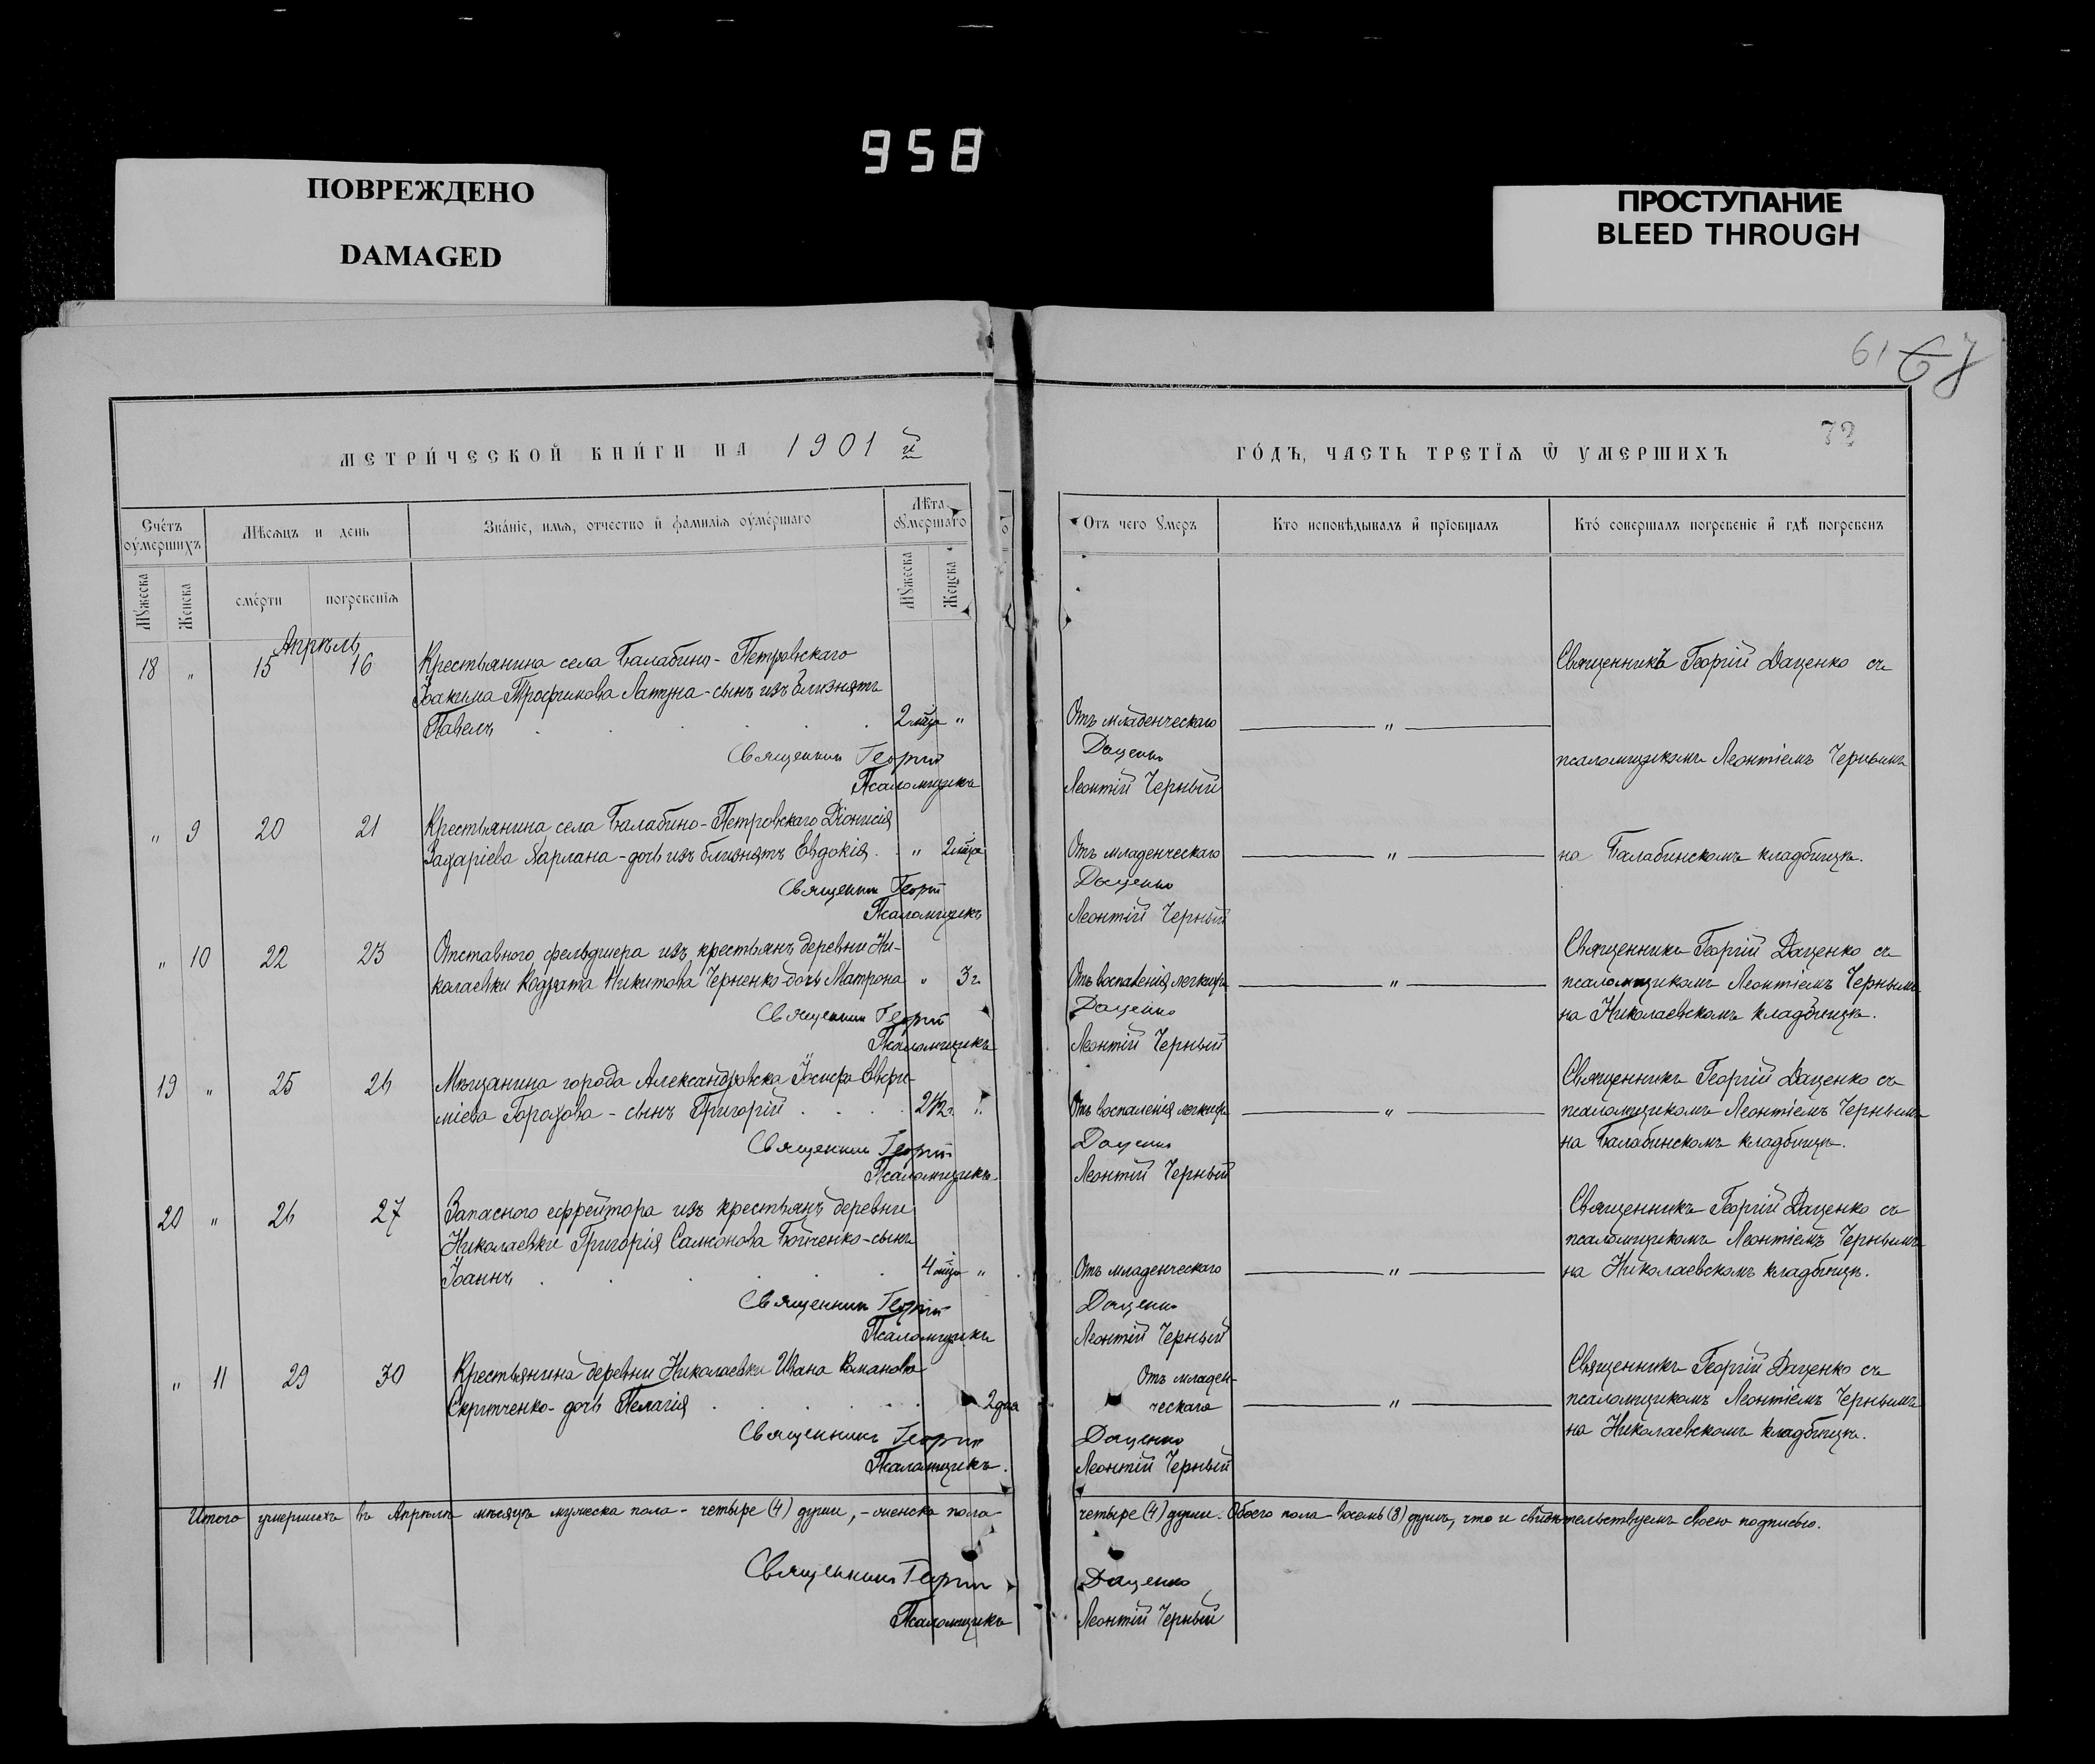 958
ПОВРЕЖДЕНО
DAMAGED
ПРОСТУПАНИЕ
BLEED THROUGH
61 67
73
МЕТРИ́ЧЕСКОЙ КНИ́ГИ НА 1901 й
ГО́ДЪ, ЧАСТЬ ТРЕТІѦ Ѿ УМЕРШИХЪ
Сче́тъ оумершихъ
Мѣсѧцъ и день
Зва́ніе, имѧ, отчество и фамиліѧ оуме́ршаго
Лѣта Ꙋмершаго
Мꙋжеска
Женска
сме́рти
погребеніѧ
Мꙋжеска
Женска
Отъ чего ꙋмеръ
Кто исповѣдывалъ и пріобщалъ
Кто́ совершалъ погребеніе и гдѣ погребенъ
Апрѣль
18 " 15 16 Крестьянина села Балабино-Петровскаго
Іоакима Трофимова Латуна - сынъ изъ близнятъ
Павелъ . . . . 2 мѣс "
Отъ младенческаго "
Священникъ Георгій Даценко съ
псаломщикомъ Леонтіемъ Чернымъ
Священникъ Георгій Даценко
Псаломщикъ Леонтій Черный
" 9 20 21 Крестьянина села Балабино-Петровскаго Діонисія
Захаріева Харлана - дочь изъ близнятъ Евдокія . " 2 мѣс
Отъ младенческаго " на Балабинскомъ кладбищѣ.
Священникъ Георгій Даценко
Псаломщикъ Леонтій Черный
" 10 22 23 Отставного фельдшера изъ крестьянъ деревни Ни-
колаевки Кодрата Никитова Черненко - дочь Матрона " 3 г.
Отъ воспаленія легкихъ "
Священникъ Георгій Даценко съ
псаломщикомъ Леонтіемъ Чернымъ
на Николаевскомъ кладбищѣ.
Священникъ Георгій Даценко
Псаломщикъ Леонтій Черный
19 " 25 26 Мѣщанина города Александровска Іосифа Евфи-
міева - сынъ Григорій . . . . 2½ г. "
Отъ воспаленія легкихъ "
Священникъ Георгій Даценко съ
псаломщикомъ Леонтіемъ Чернымъ
на Балабинскомъ кладбищѣ.
Священникъ Георгій Даценко
Псаломщикъ Леонтій Черный
20 " 26 27 Запасного ефрейтора изъ крестьянъ деревни
Николаевки Григорія Самсонова Бойченко - сынъ
Іоаннъ . . . . 4 мѣс "
Отъ младенческаго "
Священникъ Георгій Даценко съ
псаломщикомъ Леонтіемъ Чернымъ
на Николаевскомъ кладбищѣ.
Священникъ Георгій Даценко
Псаломщикъ Леонтій Черный
" 11 29 30 Крестьянина деревни Николаевки Ивана Романова
Скрипченко - дочь Пелагія . . . . 2 дня
Отъ младен-
ческаго "
Священникъ Георгій Даценко съ
псаломщикомъ Леонтіемъ Чернымъ
на Николаевскомъ кладбищѣ.
Священникъ Георгій Даценко
Псаломщикъ Леонтій Черный
Итого умершихъ въ Апрѣлѣ мѣсяцѣ мужеска пола - четыре (4) души, - женска пола четыре (4) души. Обоего пола восемь (8) душъ, что и свидѣтельствуемъ своею подписью.
Священникъ Георгій Даценко
Псаломщикъ Леонтій Черный